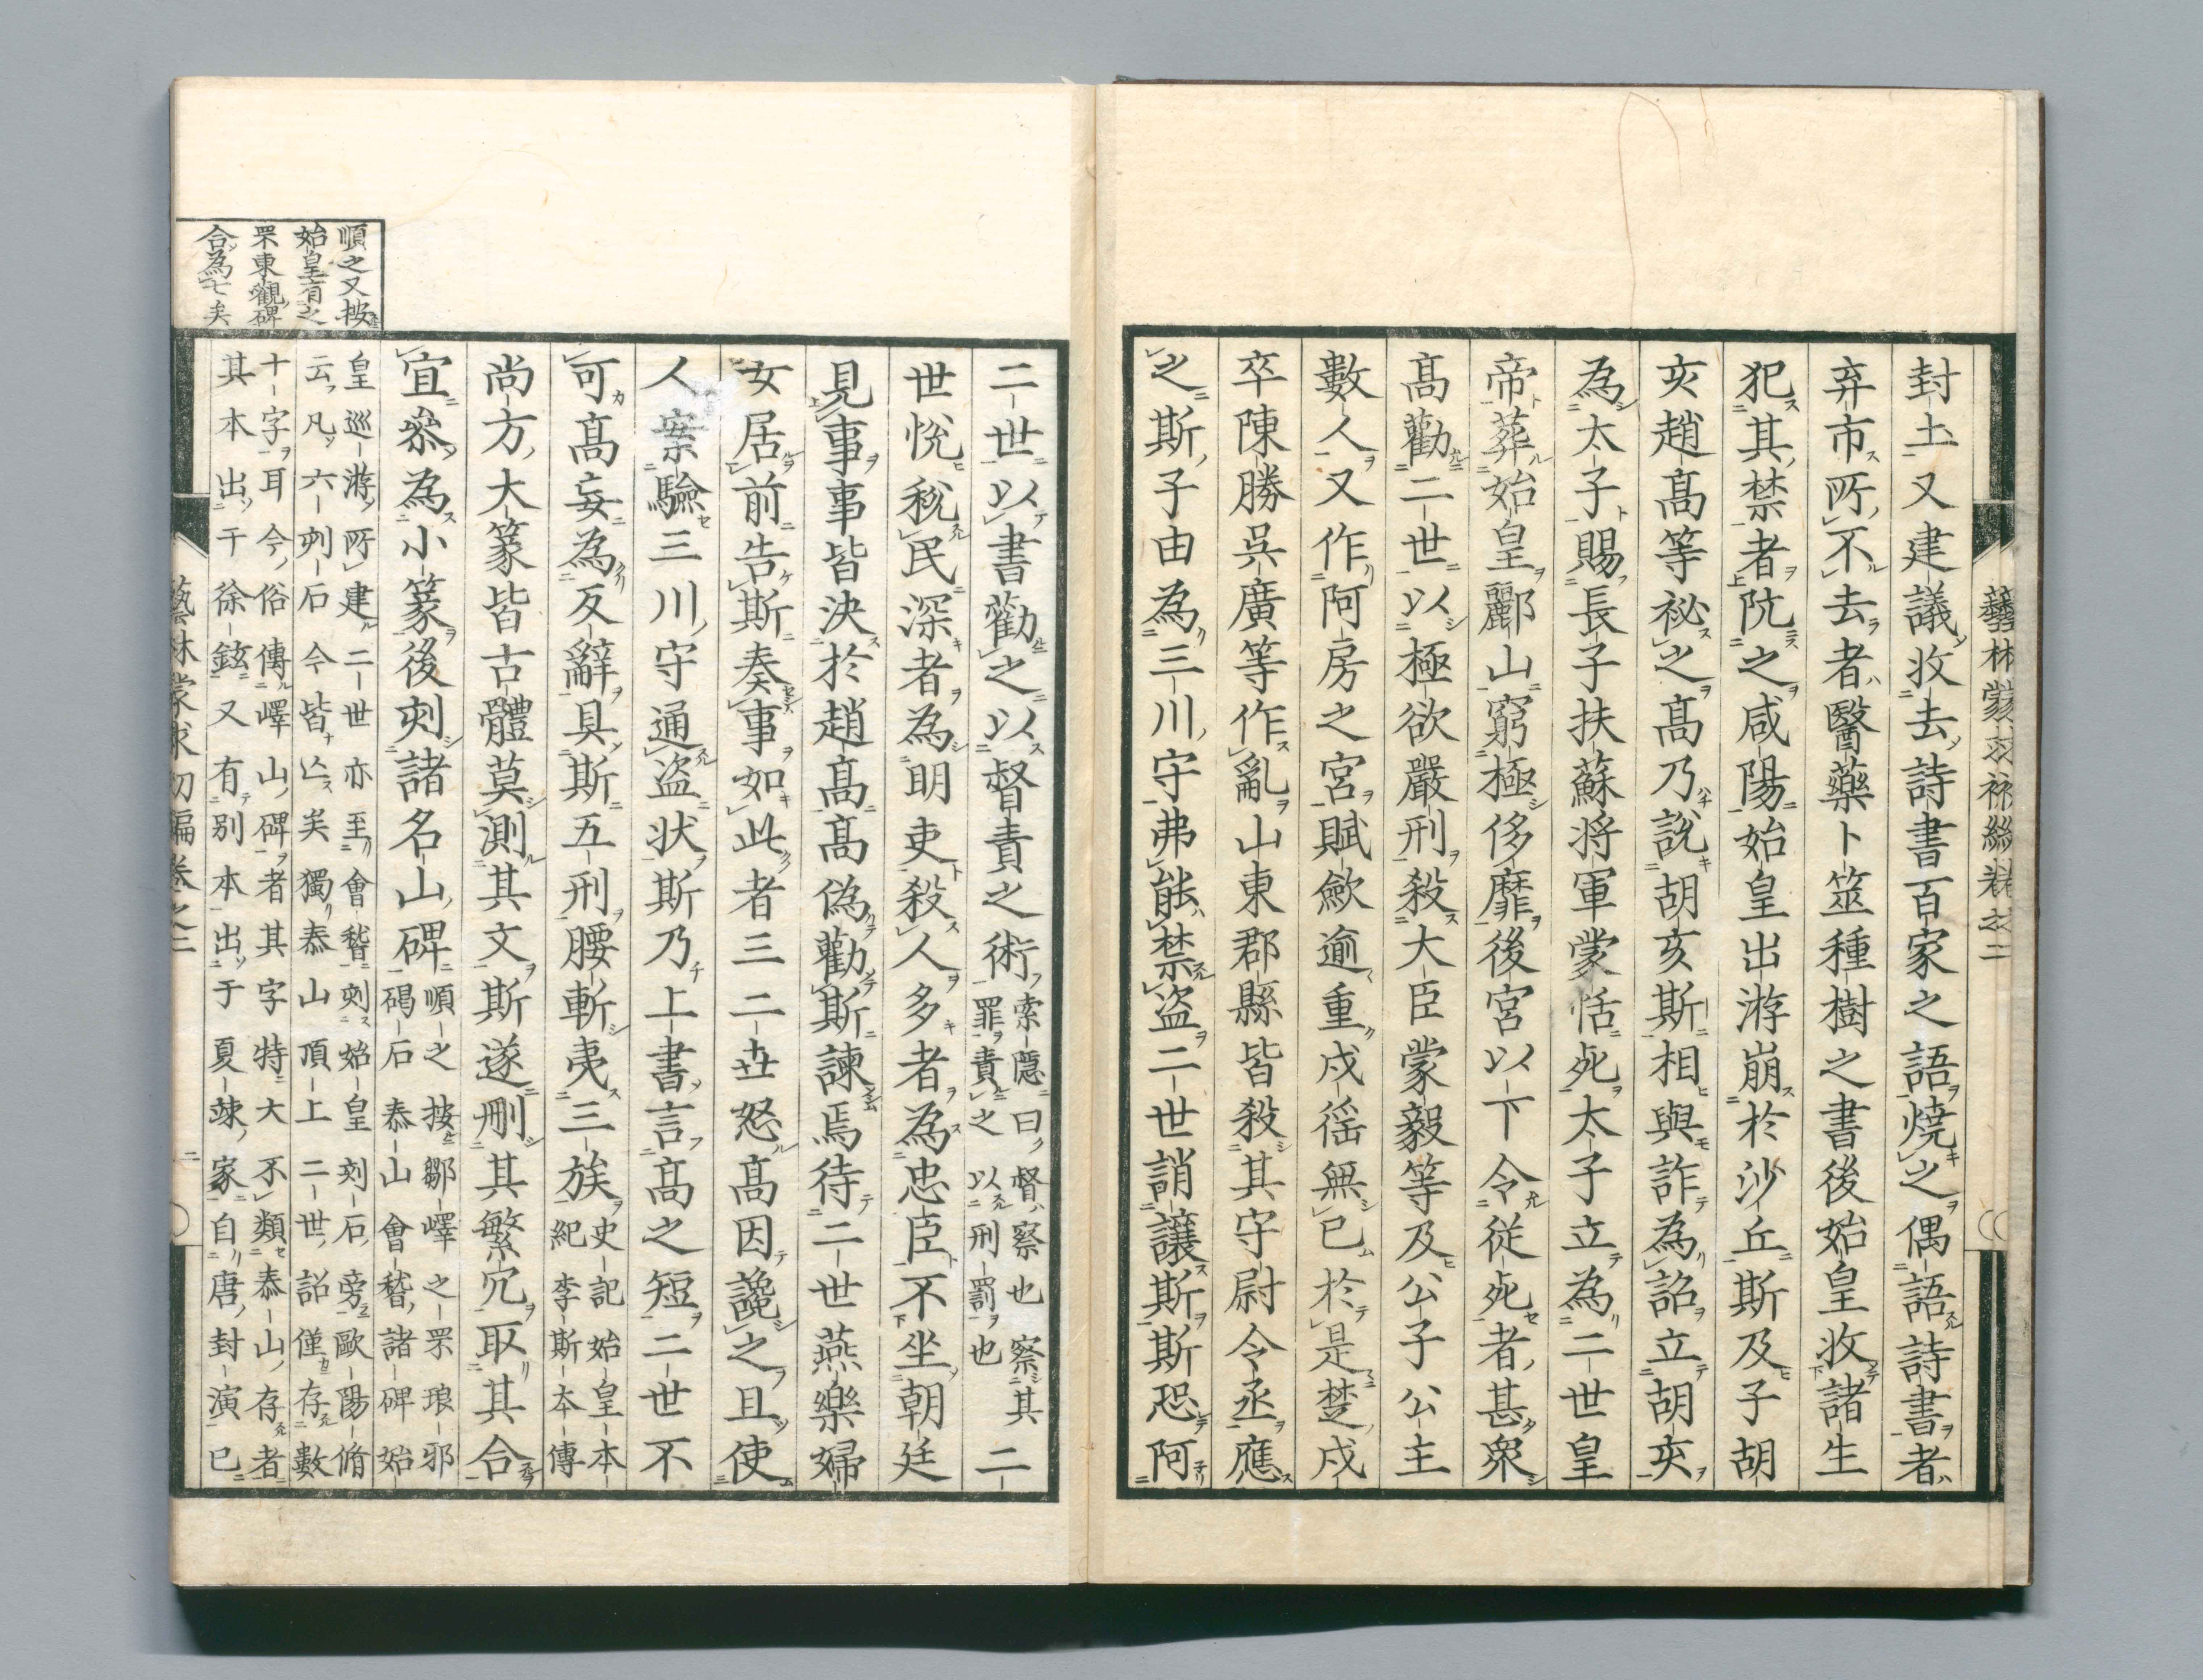 封土又建議收去詩書百家之語燒之偶語詩書者
弃市所不去者醫藥卜筮種樹之書後始皇收諸生
犯其禁者阬之咸陽始皇出游崩於沙丘斯及子胡
亥趙髙等祕之髙乃說胡亥斯相與詐為詔立胡亥
為太子賜長子扶蘇將軍蒙恬死太子立為二世皇
帝葬始皇酈山窮極侈靡後宮以下令從死者甚衆
髙勸二世以極欲嚴刑殺大臣蒙毅等及公子公主
數人又作阿房之宮賦歛逾重戍徭無已於是楚戍
卒陳勝吳廣等作亂山東郡縣皆殺其守尉令丞應
之斯子由為三川守弗能禁盗二世誚讓斯斯恐阿
二世以書勸之以督責之術
索隱曰督察也察其
罪責之以刑罰也
二
世悅稅民深者為明吏殺人多者為忠臣不坐朝廷
見事事皆決於趙髙髙偽勸斯諫焉待二世燕樂婦
女居前告斯奏事如此者三二世怒髙因讒之且使
人案驗三川守通盗狀斯乃上書言髙之短二世不
可髙妄為反辭具斯五刑腰斬夷三族
史記始皇本
紀李斯本傳
尚方大篆皆古體莫測其文斯遂刪其繁冗取其合
宜叅為小篆後刻諸名山碑
順之按鄒嶧之罘琅邪
碣石泰山會稽諸碑始
皇巡游所建二世亦至會稽刻始皇刻石旁歐陽脩
云凡六刻石今皆亡矣獨泰山頂上二世詔僅存數
十字耳今俗傳嶧山碑者其字特大不類泰山存者
其本出于徐鉉又有別本出于夏竦家自唐封演已
順之又按
始皇有之
罘東觀碑
合為七矣
藝林蒙求初編卷之二
二